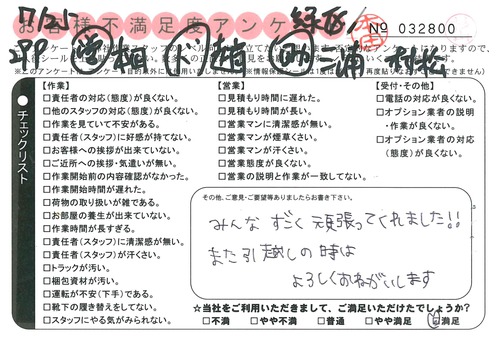 7/25
お客様不満足度アンケ
緑区
No 032800
三浦
チェックリスト
【作業】
□責任者の対応（態度）が良くない。
□他のスタッフの対応（態度）が良くない。
□作業を見ていて不安がある。
□責任者（スタッフ）に好感が持てない。
□お客様への挨拶が出来ていない。
□ご近所への挨拶・気遣いが無い。
□作業開始前の内容確認がなかった。
□作業開始時間が遅れた。
□荷物の取り扱いが雑である。
□お部屋の養生が出来ていない。
□作業時間が長すぎる。
□責任者（スタッフ）に清潔感が無い。
□責任者（スタッフ）が汗くさい。
□トラックが汚い。
□梱包資材が汚い。
□運転が不安（下手）である。
□靴下の履き替えをしてない。
□スタッフにやる気がみられない。
【営業】
□見積もり時間に遅れた。
□見積もり時間が長い。
□営業マンに清潔感が無い。
□営業マンが煙草くさい。
□営業マンが汗くさい。
□営業態度が良くない。
□営業の説明と作業が一致してない。
【受付・その他】
□電話の対応が良くない。
□オプション業者の説明
・作業が良くない。
□オプション業者の対応
（態度）が良くない。
その他、ご意見・ご要望等ありましたらお書き下さい。
みんな すごく 頑張ってくれました!!
また引越しの時は
よろしくおねがいします
☆当社をご利用いただきまして、ご満足いただけたでしょうか？
□不満 □やや不満 □普通 □やや満足 □満足